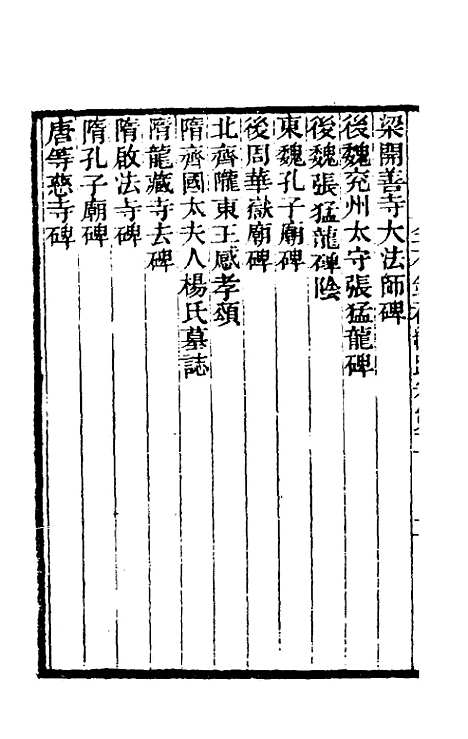 梁開善寺大法師碑
後魏兖州太守張猛龍碑
後魏張猛龍碑陰
東魏孔子廟碑
後周華嶽廟碑
北齊隴東王感孝頌
隋齊國太夫人楊氏墓誌
隋龍藏寺去碑
隋啟法寺碑
隋孔子廟碑
唐等慈寺碑